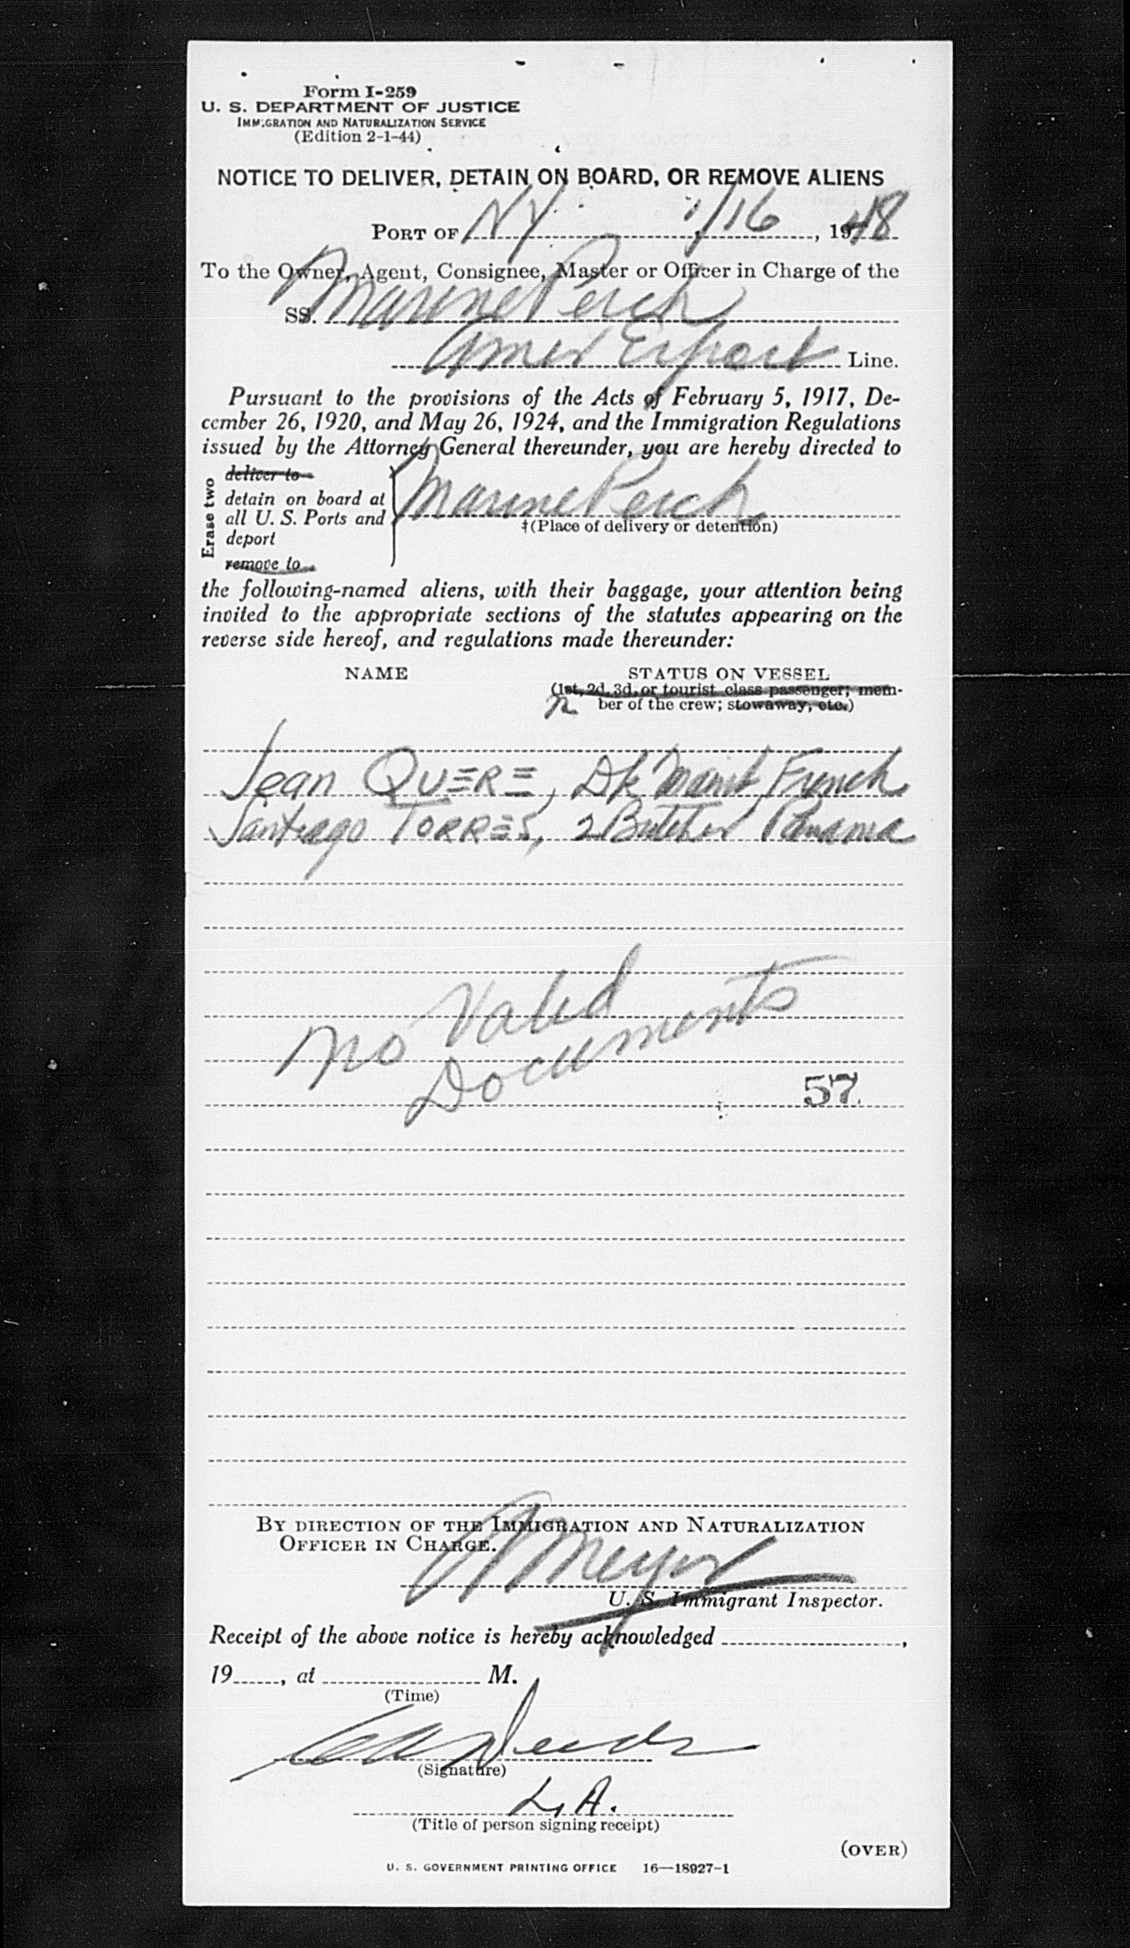 Form I-259
U. S. DEPARTMENT OF JUSTICE
IMMIGRATION AND NATURALIZATION SERVICE
(Edition 2-1-44)
NOTICE TO DELIVER, DETAIN ON BOARD, OR REMOVE ALIENS
PORT OF NY. 1/16, 1948
To the Owner, Agent, Consignee, Master or Officer in Charge of the
SS. Marine Perch
Amer Export Line.
Pursuant to the provisions of the Acts of February 5, 1917, De-
cember 26, 1920, and May 26, 1924, and the Immigration Regulations
issued by the Attorney General thereunder, you are hereby directed to
Erase two
deliver to
detain on board at
all U. S. Ports and
deport
remove to
Marine Perch
‡(Place of delivery or detention)
the following-named aliens, with their baggage, your attention being
invited to the appropriate sections of the statutes appearing on the
reverse side hereof, and regulations made thereunder:
NAME STATUS ON VESSEL
(1st, 2d, 3d, or tourist class passenger; mem-
ber of the crew; stowaway, etc.)
Jean QUERE, Dk Maint French
Santiago TORRES, 2 Butcher Panama
no Valid
Documents
57
BY DIRECTION OF THE IMMIGRATION AND NATURALIZATION
OFFICER IN CHARGE.
Meyer
U. S. Immigrant Inspector.
Receipt of the above notice is hereby acknowledged ,
19 , at M.
(Time)
(Signature)
L, A.
(Title of person signing receipt)
(OVER)
U. S. GOVERNMENT PRINTING OFFICE 16—18927-1